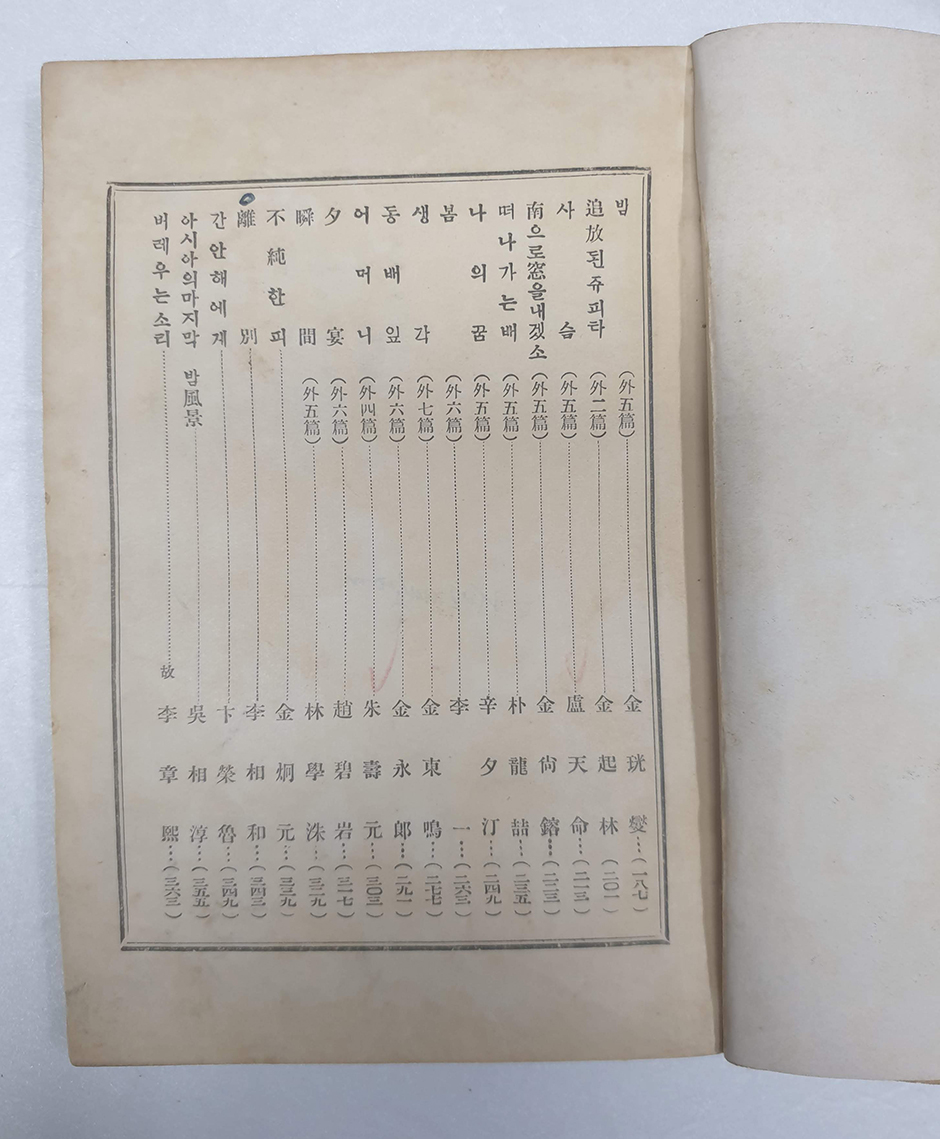 밤 (外五篇) 金珖燮 (一八七)
追放된쥬피타 (外二篇) 金起林 (二〇一)
사슴 (外五篇) 盧天命 (二一三)
南으로窓을내겠소 (外五篇) 金尙鎔 (二二三)
떠나가는배 (外五篇) 朴龍喆 (二三五)
나의꿈 (外五篇) 辛夕汀 (二四九)
봄 (外六篇) 李一 (二六三)
생각 (外七篇) 金東鳴 (二七七)
동배잎 (外六篇) 金永郎 (二九一)
어머니 (外四篇) 朱壽元 (三〇三)
夕宴 (外六篇) 趙碧岩 (三一七)
瞬間 (外五篇) 林學洙 (三二九)
不純한피 金炯元 (三三九)
離別 李相和 (三四三)
간안해에게 卞榮魯 (三四九)
아시아의마지막 밤風景 吳相淳 (三五五)
버레우는소리 故 李章熙 (三六三)